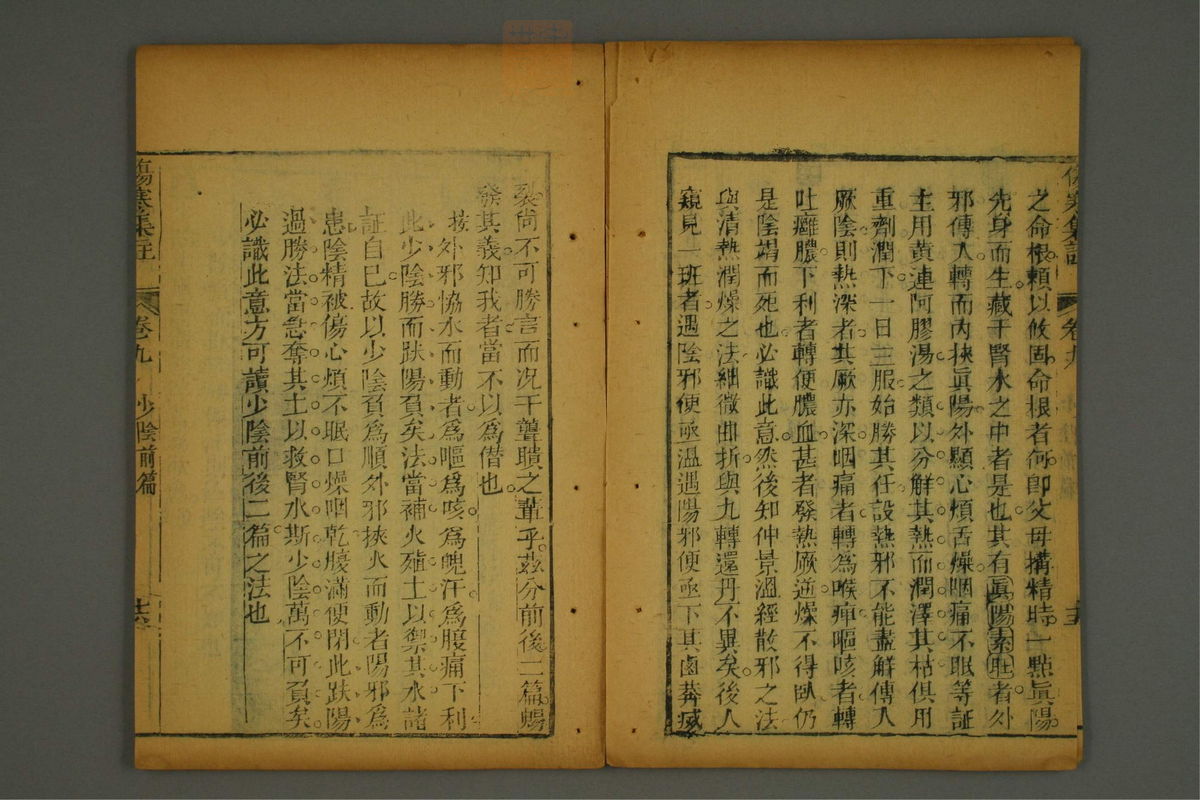 傷寒集註 卷九
之命根賴以攸固命根者何卽父母搆精時一點眞陽
先身而生藏于腎水之中者是也其有眞陽素旺者外
邪傳入轉而內挾眞陽外顯心煩舌燥咽痛不眠等証
主用黄連阿膠湯之類以分解其熱而潤澤其枯俱用
重劑潤下一日三服始勝其任設熱邪不能盡解傳入
厥陰則熱深者其厥亦深咽痛者轉爲喉痺嘔咳者轉
吐癰膿下利者轉便膿血甚者發熱厥逆燥不得臥仍
是陰竭而死也必識此意然後知仲景溫經散邪之法
與清熱潤燥之法細微曲折與九轉還丹不異矣後人
窺見一班者遇陰邪便亟溫遇陽邪便亟下其鹵莽滅
裂尚不可勝言而况于聾聵之輩乎茲分前後二篇暢
發其義知我者當不以爲僭也
按外邪協水而動者爲嘔爲咳爲魄汗爲腹痛下利
此少陰勝而趺陽負矣法當補火殖土以禦其水諸
証自已故以少陰負爲順外邪挾火而動者陽邪爲
患陰精被傷心煩不眠口燥咽乾腹滿便閉此趺陽
過勝法當急奪其土以救腎水斯少陰萬不可負矣
必識此意方可讀少陰前後二篇之法也
傷寒集註 卷九 少陰前篇